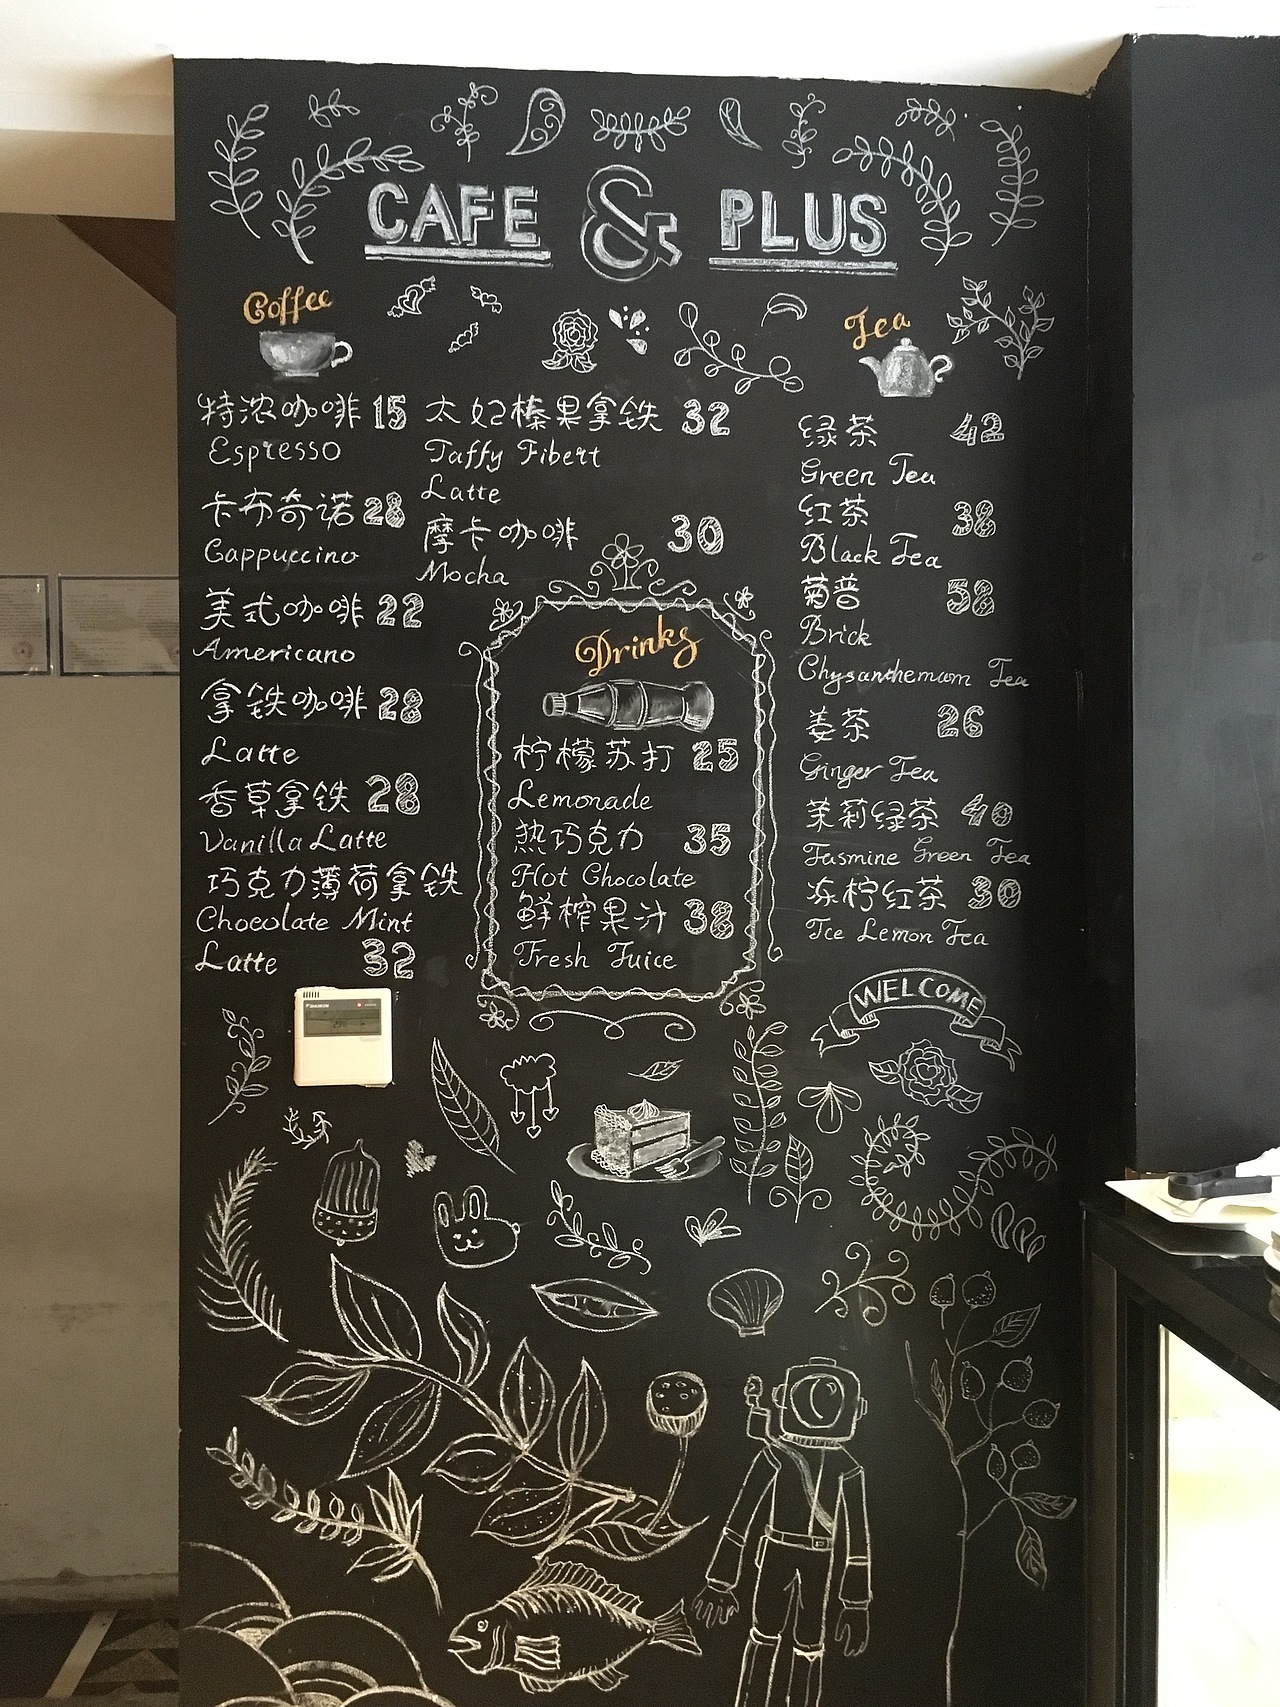 CAFE & PLUS
Coffee
特浓咖啡 15
Espresso
卡布奇诺 28
Cappuccino
美式咖啡 22
Americano
拿铁咖啡 28
Latte
香草拿铁 28
Vanilla Latte
巧克力薄荷拿铁
Chocolate Mint
Latte 32
太妃榛果拿铁 32
Taffy Fibert
Latte
摩卡咖啡 30
Mocha
Drinks
柠檬苏打 25
Lemonade
热巧克力 35
Hot Chocolate
鲜榨果汁 38
Fresh Juice
Tea
绿茶 42
Green Tea
红茶 38
Black Tea
菊普 58
Brick
Chysanthemum Tea
姜茶 26
Ginger Tea
茉莉绿茶 40
Jasmine Green Tea
冻柠红茶 30
Ice Lemon Tea
WELCOME
DAIKIN